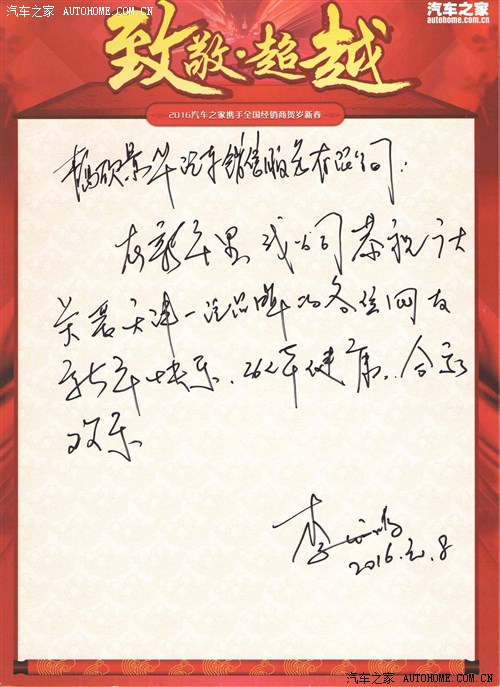 汽车之家 AUTOHOME.COM.CN
汽车之家
autohome.com.cn
致敬·超越
2016汽车之家携手全国经销商贺岁新春
硕泰华汽车销售服务有限公司:
在新年里我公司恭祝广大
关爱天津一汽品牌的各位网友
新年快乐、身体健康、合家
欢乐
李
2016.元.8
汽车之家 AUTOHOME.COM.CN